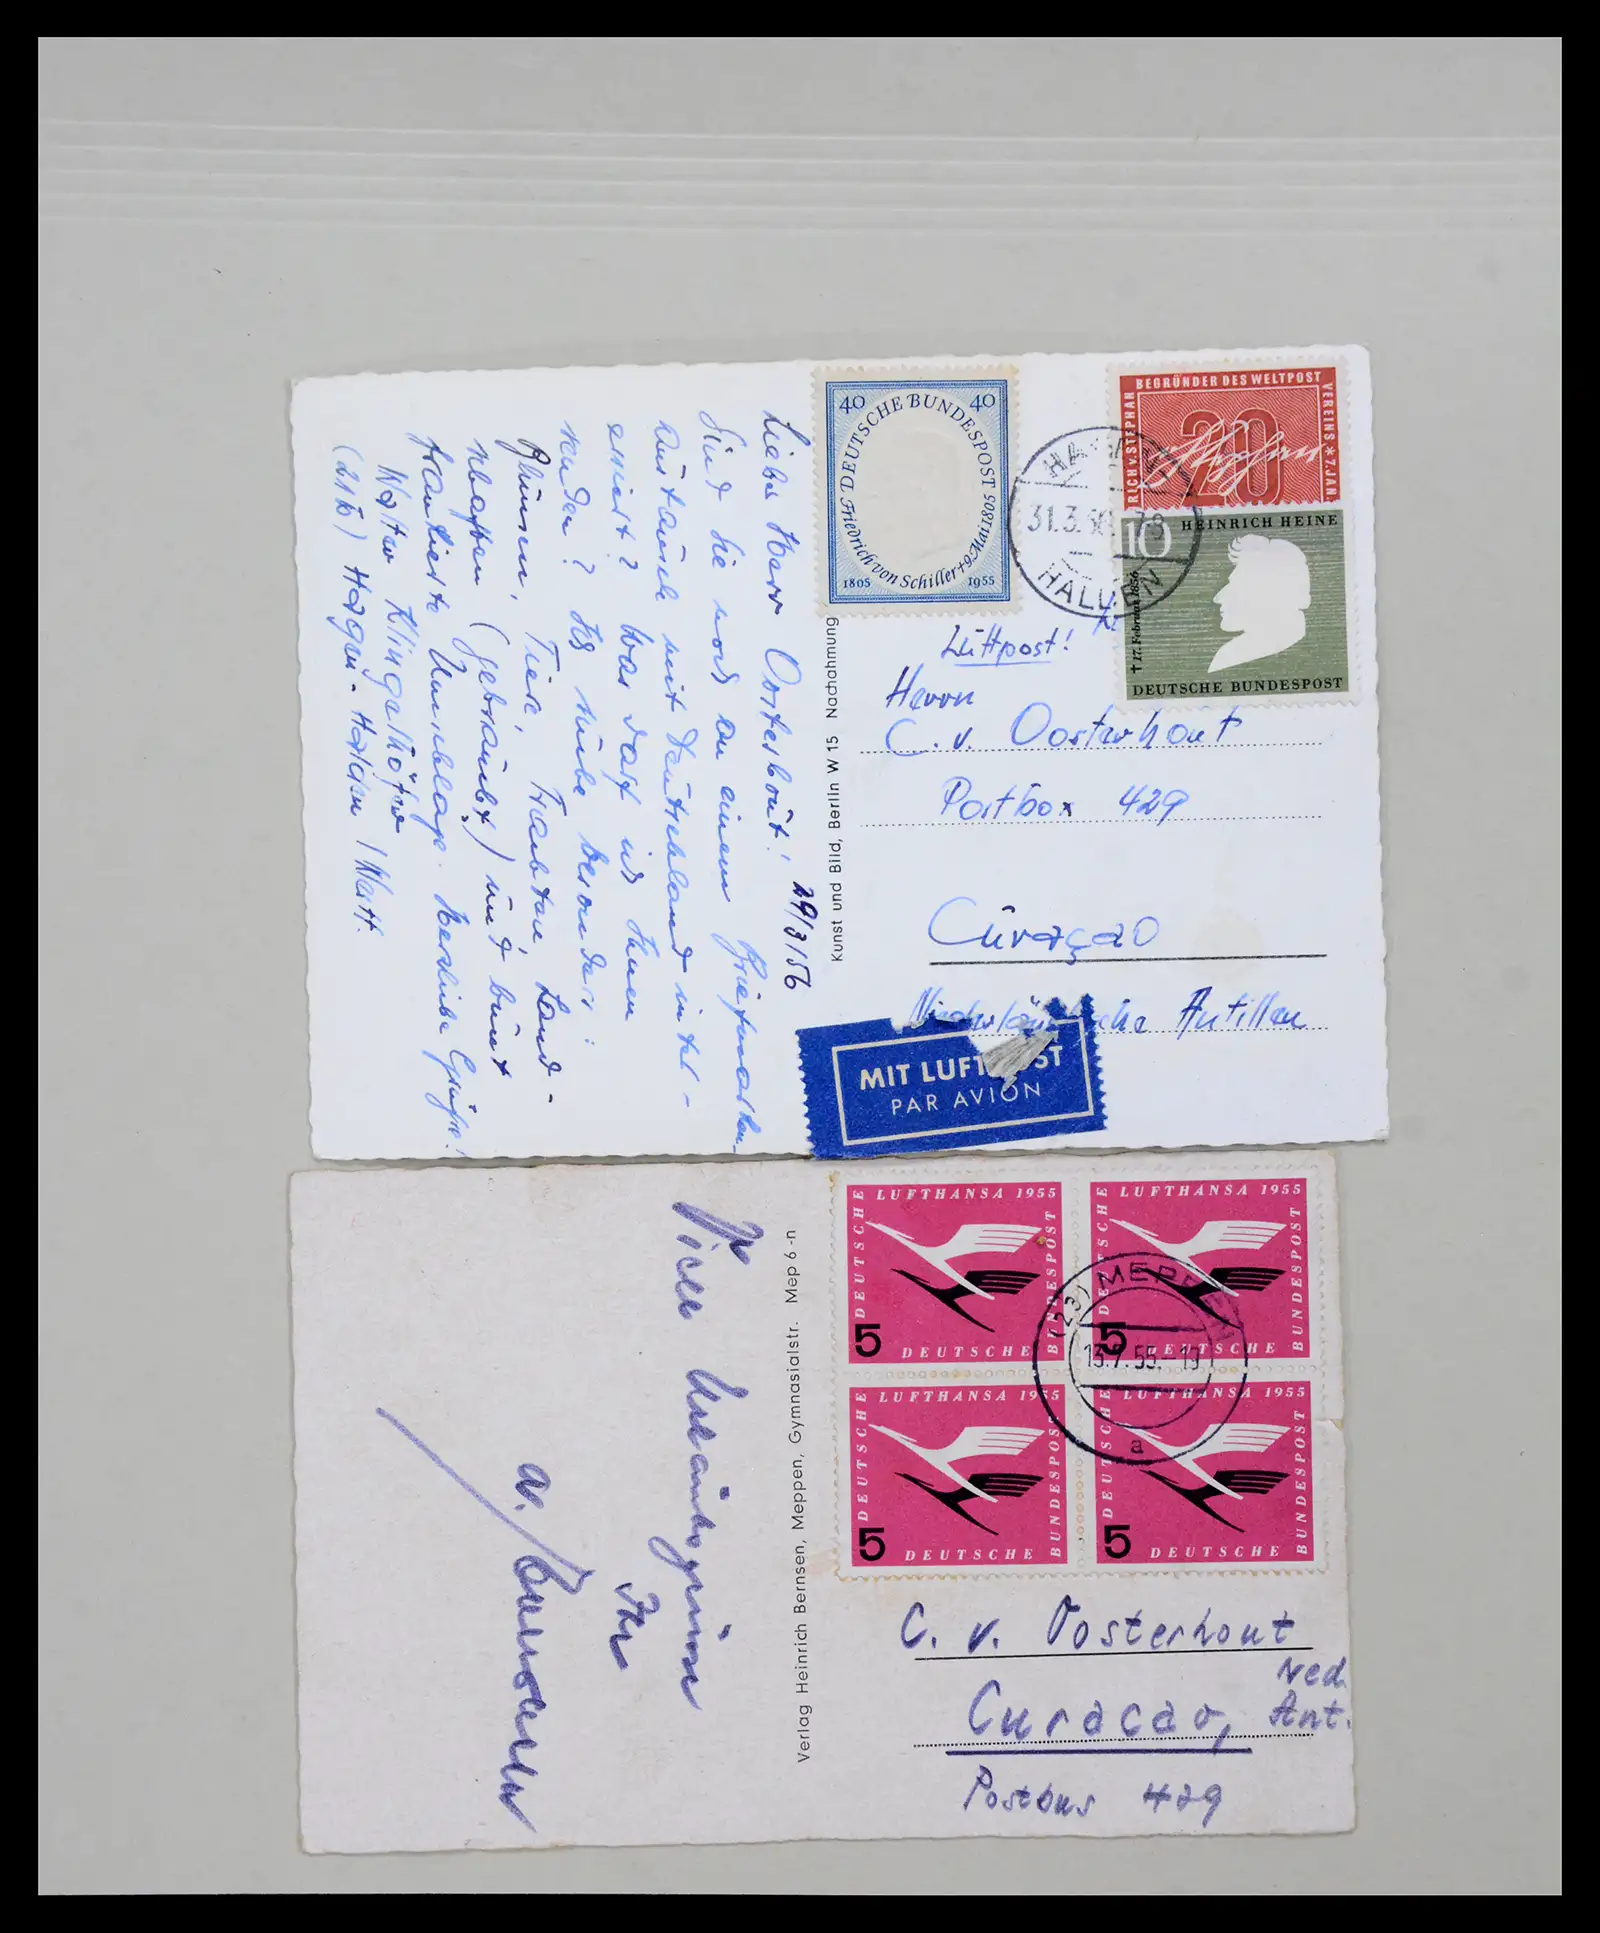 Liebe Herr Oosterhout! 29/3/56
Sind Sie noch an einem Briefmarken-
Austausch mit Deutschland inter-
essiert? Was darf ich Ihnen
senden? Ich suche besonders:
Blumen, Tiere, Trachten, Land-
schaften (gebraucht) und bunt
frankierte Umschläge. Herzliche Grüsse!
Walter Klingelhöfer
(21b) Hagen-Halden /Westf.
40 DEUTSCHE BUNDESPOST 40
Friedrich von Schiller † 9. Mai 1805
1805 1955
BEGRÜNDER DES WELTPOST
VEREINS * 7. JAN
RICH v. STEPHAN
20
HAGEN
31.3.56
HALDEN
10 HEINRICH HEINE
† 17. Februar 1856
DEUTSCHE BUNDESPOST
Luftpost!
Herrn
C. v. Oosterhout
Postbox 429
Curaçao
Niederländische Antillen
MIT LUFTPOST
PAR AVION
Kunst und Bild, Berlin W 15 Nachahmung
Ihr
DEUTSCHE LUFTHANSA 1955
5 DEUTSCHE BUNDESPOST
DEUTSCHE LUFTHANSA 1955
5 DEUTSCHE BUNDESPOST
DEUTSCHE LUFTHANSA 1955
5 DEUTSCHE BUNDESPOST
DEUTSCHE LUFTHANSA 1955
5 DEUTSCHE BUNDESPOST
(23) MEPPEN
13.7.55.-19
a
Verlag Heinrich Bernsen, Meppen, Gymnasialstr. Mep 6-n
C. v. Oosterhout
Curaçao, Ned. Ant.
Postbus 429